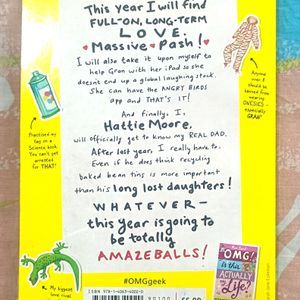 This year I will find
FULL-ON, LONG-TERM
LOVE.
Massive Pash!
I will also take it upon myself to
help Gran with her iPad so she
doesn't end up a global laughing stock.
She can have the ANGRY BIRDS
app and THAT'S IT!
Practised my
tag on a
Science book.
You can't get
arrested
for THAT!
Anyone
over 7
should be
banned from
wearing
ONESIES -
especially
GRAN!
And finally, I,
Hattie Moore,
will officially get to know my REAL DAD.
After last year, I really have to.
Even if he does think recycling
baked bean tins is more important
than his long lost daughters!
WHATEVER -
this year is going
to be totally
AMAZEBALLS!
My biggest
love rival
#OMGgeek
OMG!
Is this
ACTUALLY
my
Life!